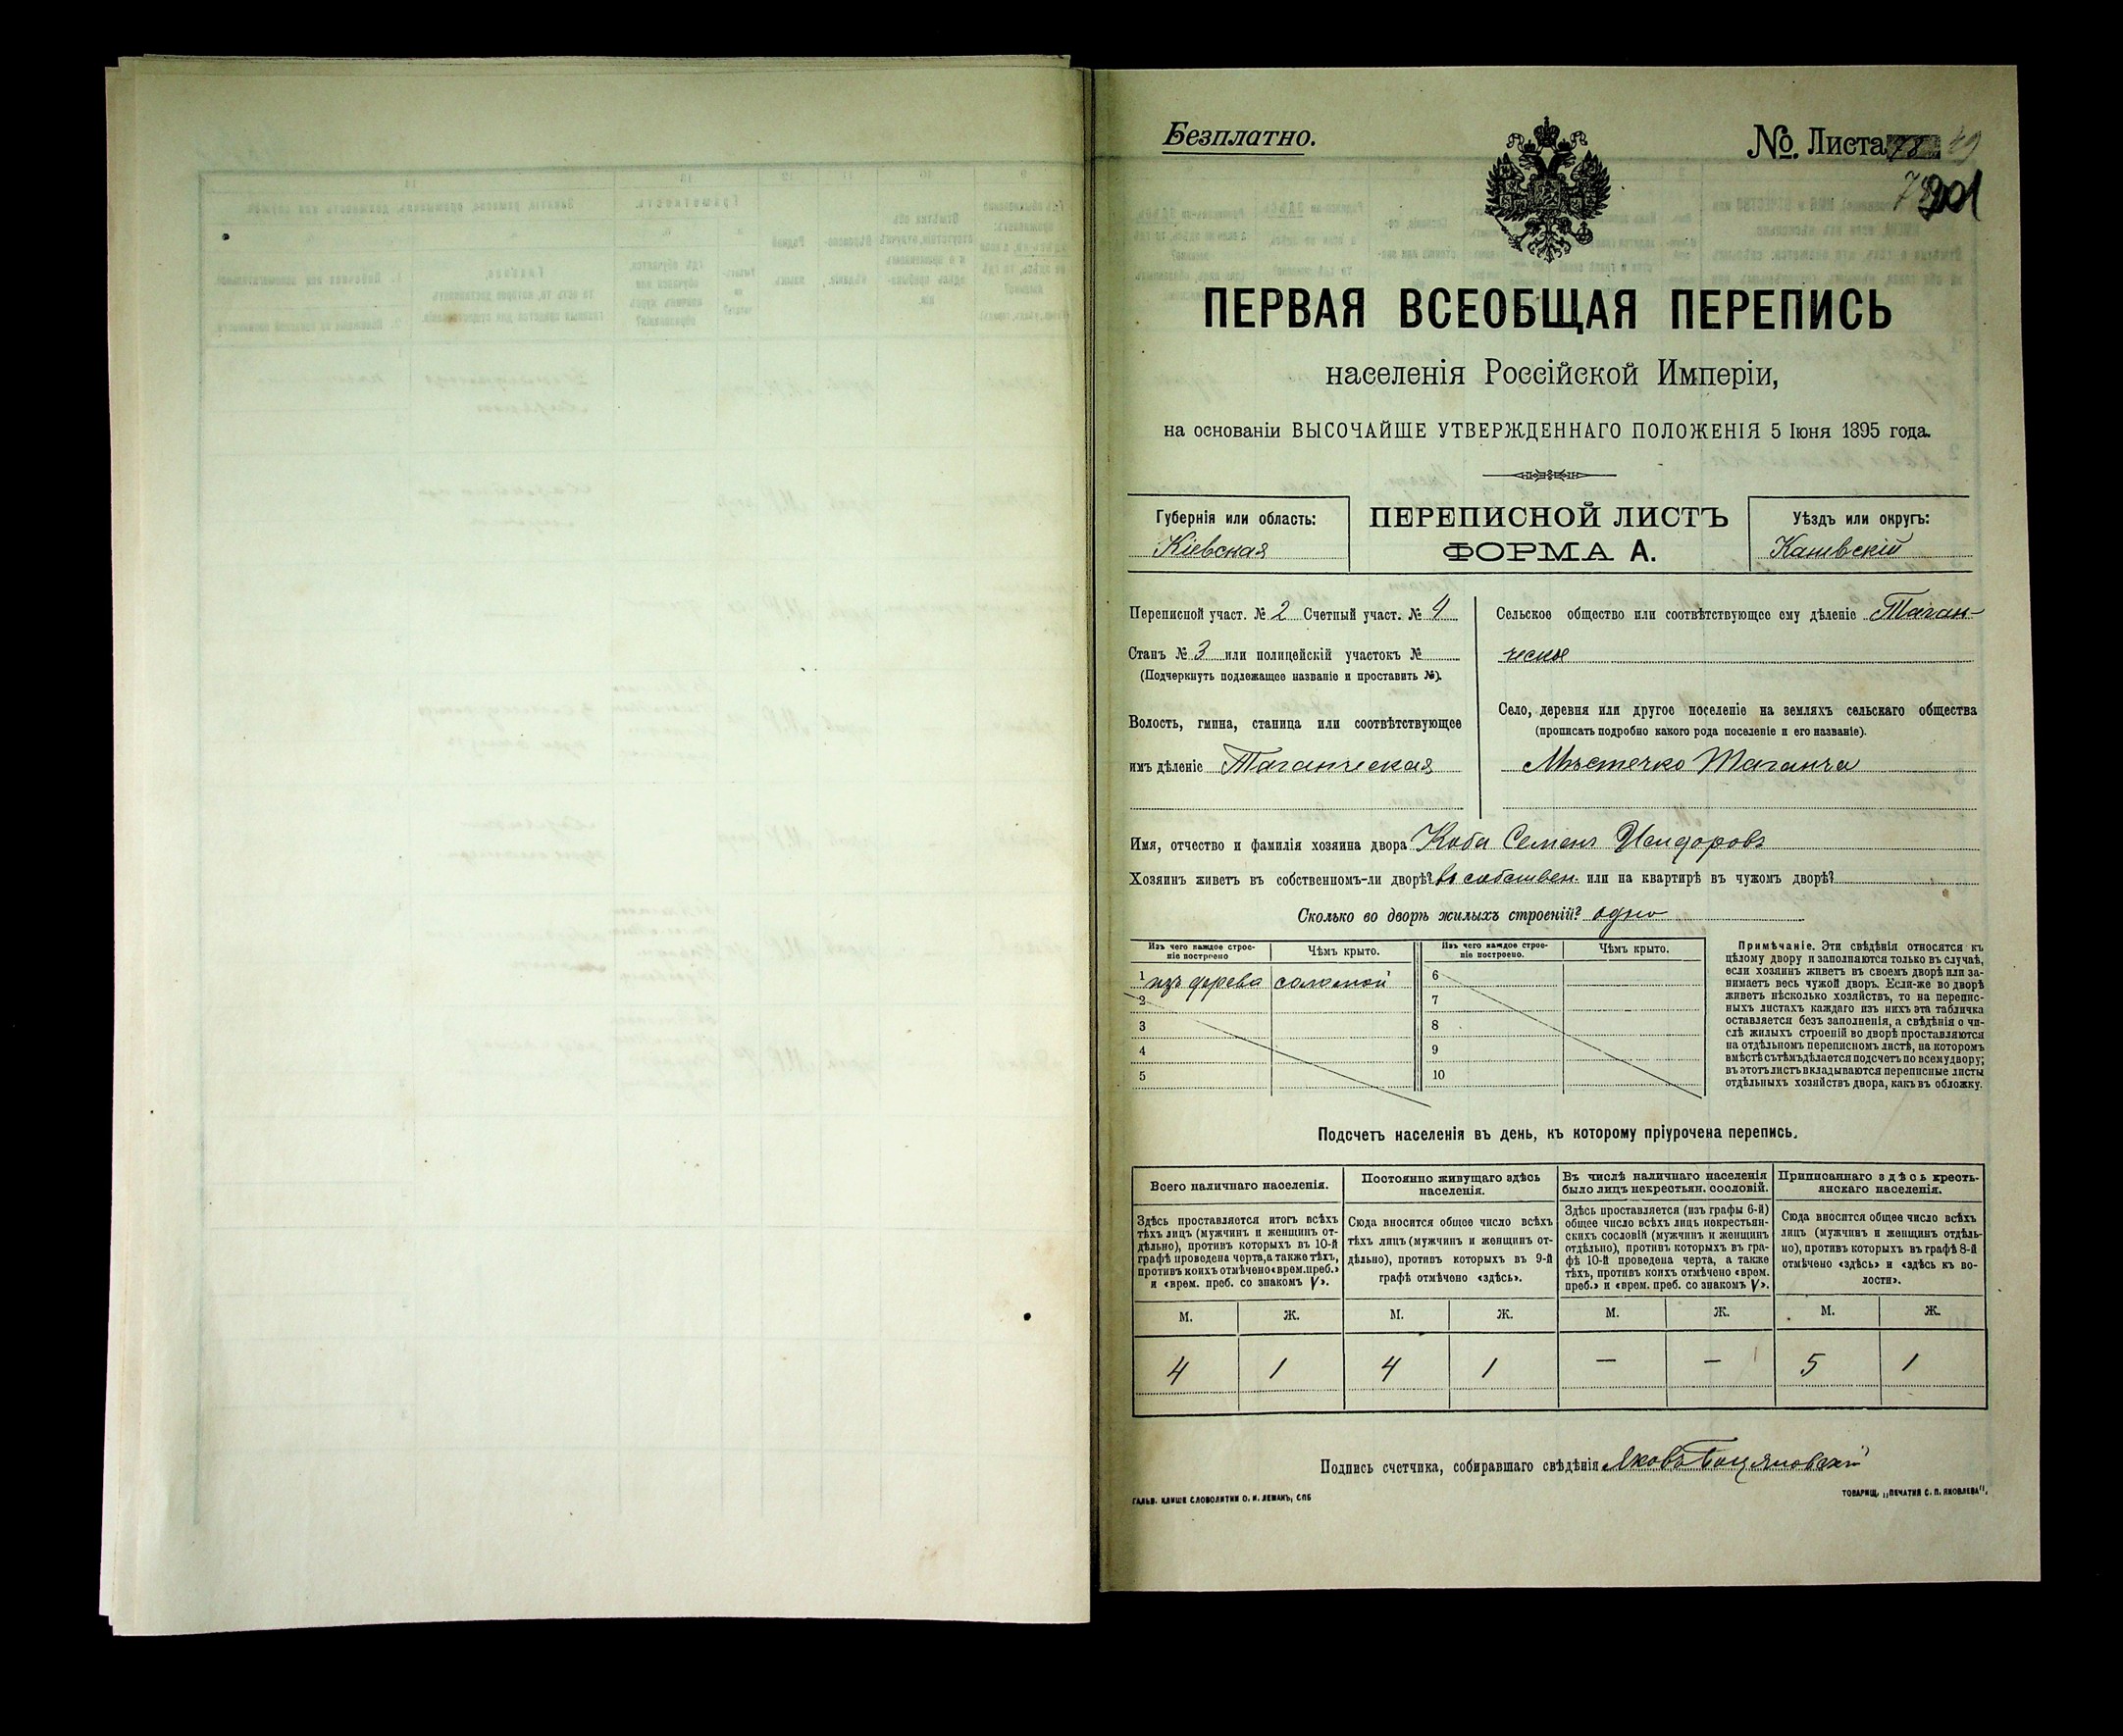 Безплатно.
№ Листа 78 49
78 201
ПЕРВАЯ ВСЕОБЩАЯ ПЕРЕПИСЬ
населенія Россійской Имперіи,
на основаніи ВЫСОЧАЙШЕ УТВЕРЖДЕННАГО ПОЛОЖЕНІЯ 5 Іюня 1895 года.
Губернія или область:
Кіевская
ПЕРЕПИСНОЙ ЛИСТЪ
ФОРМА А.
Уѣздъ или округъ:
Каневскій
Переписной участ. № 2 Счетный участ. № 4
Станъ № 3 или полицейскій участокъ №
(Подчеркнуть подлежащее названіе и проставить №).
Волость, гмина, станица или соотвѣтствующее
имъ дѣленіе Таганческая
Сельское общество или соотвѣтствующее ему дѣленіе Таган-
ческое
Село, деревня или другое поселеніе на земляхъ сельскаго общества
(прописать подробно какого рода поселеніе и его названіе).
Мѣстечко Таганча
Имя, отчество и фамилія хозяина двора Коба Семенъ Исидоровъ
Хозяинъ живетъ въ собственномъ-ли дворѣ? въ собствен. или на квартирѣ въ чужомъ дворѣ?
Сколько во дворѣ жилыхъ строеній? одно
Изъ чего каждое строе-
ніе построено
Чѣмъ крыто.
Изъ чего каждое строе-
ніе построено.
Чѣмъ крыто.
1 изъ дерева соломой
2
3
4
5
6
7
8
9
10
Примѣчаніе. Эти свѣдѣнія относятся къ
цѣлому двору и заполняются только въ случаѣ,
если хозяинъ живетъ въ своемъ дворѣ или за-
нимаетъ весь чужой дворъ. Если-же во дворѣ
живетъ нѣсколько хозяйствъ, то на перепис-
ныхъ листахъ каждаго изъ нихъ эта табличка
оставляется безъ заполненія, а свѣдѣнія о чи-
слѣ жилыхъ строеній во дворѣ проставляются
на отдѣльномъ переписномъ листѣ, на которомъ
вмѣстѣ съ тѣмъ дѣлается подсчетъ по всему двору;
въ этотъ листъ вкладываются переписные листы
отдѣльныхъ хозяйствъ двора, какъ въ обложку.
Подсчетъ населенія въ день, къ которому пріурочена перепись.
Всего наличнаго населенія.
Здѣсь проставляется итогъ всѣхъ
тѣхъ лицъ (мужчинъ и женщинъ от-
дѣльно), противъ которыхъ въ 10-й
графѣ проведена черта, а также тѣхъ,
противъ коихъ отмѣчено «врем. преб.»
и «врем. преб. со знакомъ V».
Постоянно живущаго здѣсь
населенія.
Сюда вносится общее число всѣхъ
тѣхъ лицъ (мужчинъ и женщинъ от-
дѣльно), противъ которыхъ въ 9-й
графѣ отмѣчено «здѣсь».
Въ числѣ наличнаго населенія
было лицъ некрестьян. сословій.
Здѣсь проставляется (изъ графы 6-й)
общее число всѣхъ лицъ некрестьян-
скихъ сословій (мужчинъ и женщинъ
отдѣльно), противъ которыхъ въ гра-
фѣ 10-й проведена черта, а также
тѣхъ, противъ коихъ отмѣчено «врем.
преб.» и «врем. преб. со знакомъ V».
Приписаннаго здѣсь кресть-
янскаго населенія.
Сюда вносится общее число всѣхъ
лицъ (мужчинъ и женщинъ отдѣль-
но), противъ которыхъ въ графѣ 8-й
отмѣчено «здѣсь» и «здѣсь къ во-
лости».
М. Ж. М. Ж. М. Ж. М. Ж.
4 1 4 1 — — 5 1
Подпись счетчика, собиравшаго свѣдѣнія Яковъ
ГАЛЬВ. КЛИШЕ СЛОВОЛИТНИ О. И. ЛЕМАНЪ, СПБ
ТОВАРИЩ. „ПЕЧАТНЯ С. П. ЯКОВЛЕВА".